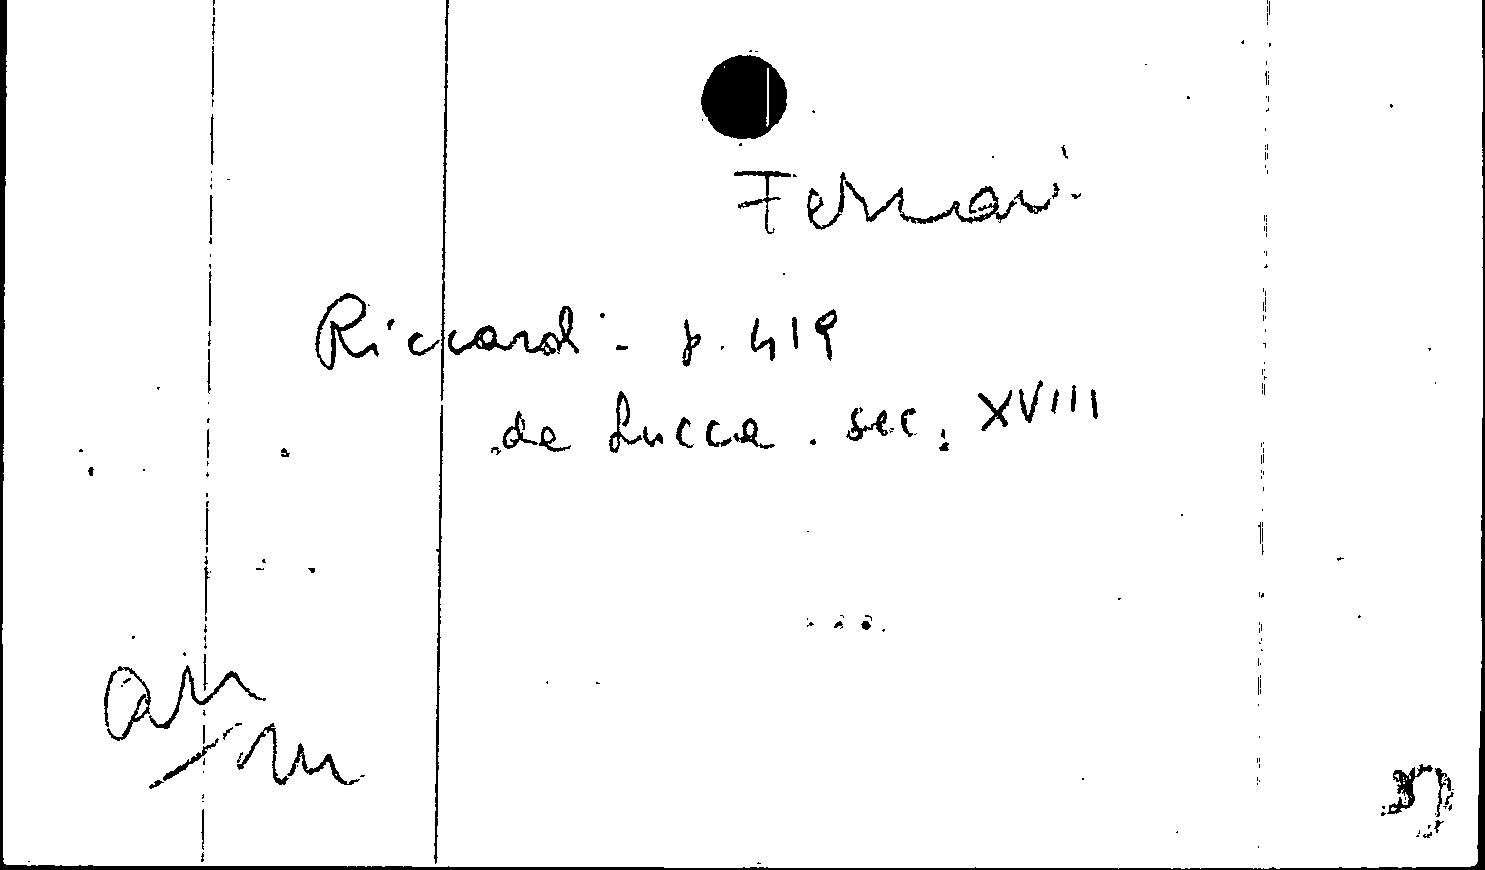 Ferrari
Riccardi - p. 419
de Lucca. sec. XVIII